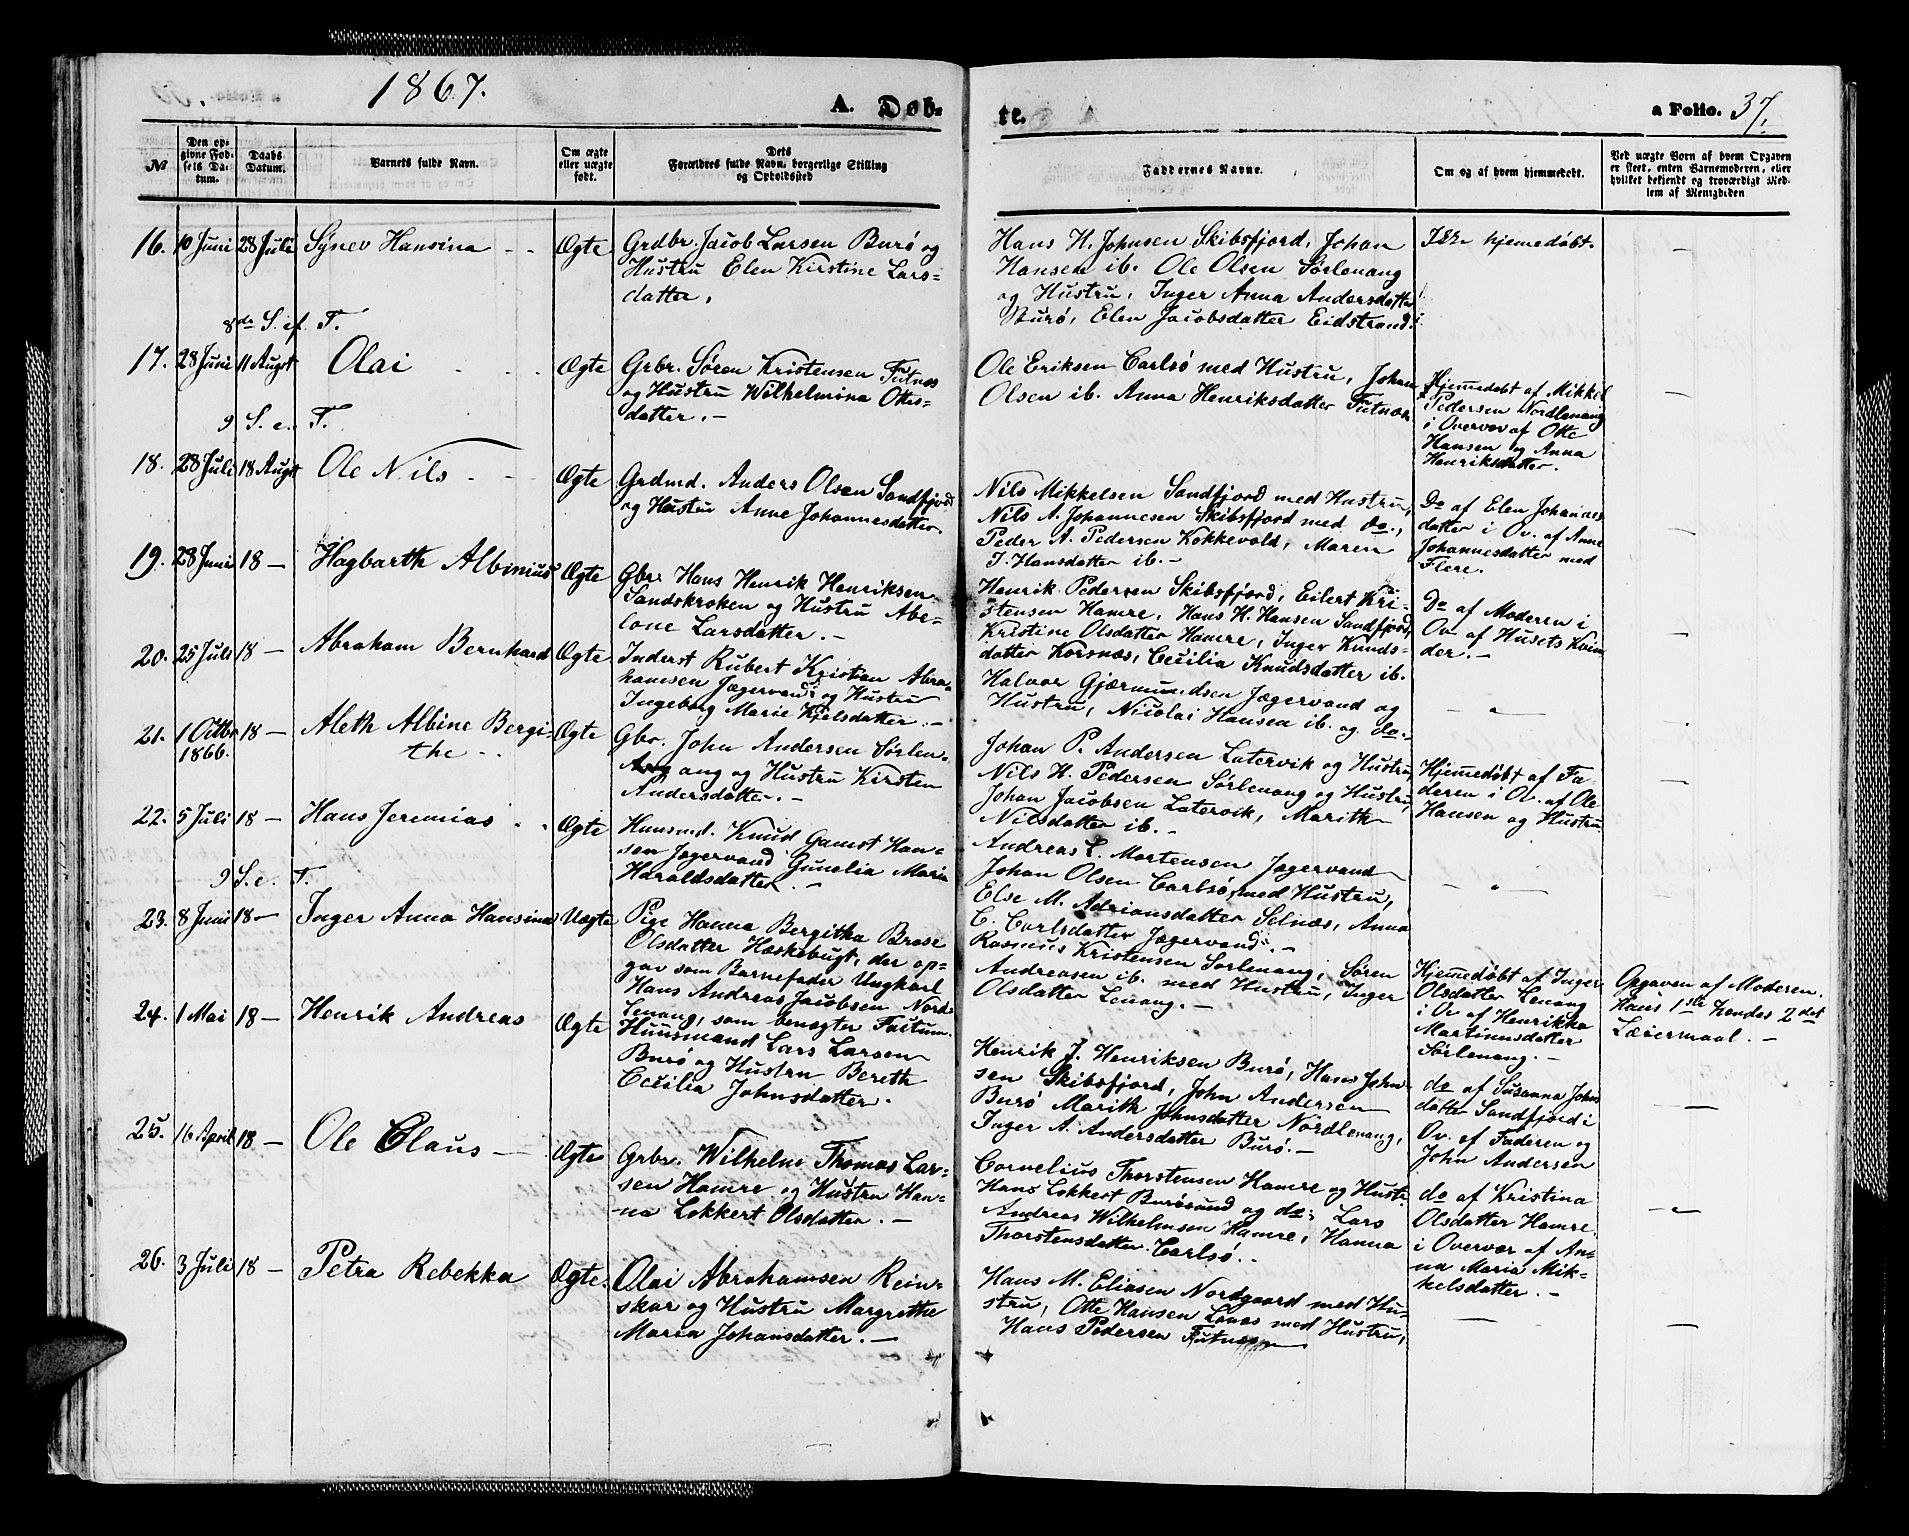 1867.
A. Døb-
te.
a Folio. 37.
№
Den op-
givne Fød-
sels Da-
tum.
Daabs
Datum.
Barnets fulde Navn.
Om ægte
eller uægte
født.
Dets
Forældres fulde Navn, borgerlige Stilling
og Opholdssted
Faddernes Navne.
Om og af hvem hjemmedøbt.
Ved uægte Børn af hvem Opgaven
er skeet, enten Barnemoderen, eller
hvilket bekjendt og troværdigt Med-
lem af Menigheden
16. 10 Juni 28 Juli Synev Hansina - - Ægte
Grdbr. Jacob Larsen Burø og
Hustru Elen Kirstine Lars-
datter.
Hans H. Johnsen Skibsfjord, Johan
Hansen ib. Ole Olsen Sørlenang
og Hustru, Inger Anna Andersdatter
Burø, Elen Jacobsdatter Eidstrand.
Ikke hjemedøbt.
—
8de S. ef. T.
17. 28 Juni 11 August Olai - - - Ægte
Grbr. Søren Kristensen Futnæs
og Hustru Wilhelmina Ottes-
datter. -
Ole Eriksen Carlsø med Hustru, Johan
Olsen ib. Anna Henriksdatter Futnæs
Hjemedøbt af Mikkel
Pedersen Nordlenang
i Overvær af Otte
Hansen og Anna
Henriksdatter.
—
9 S. e. T.
18. 28 Juli 18 Augst Ole Nils - - Ægte
Grdmd. Anders Olsen Sandfjord
og Hustru Anne Johannesdatter.
Nils Mikkelsen Sandfjord med Hustru,
Nils A. Johannesen Skibsfjord med do.,
Peder A. Pedersen Kokkevold, Maren
J. Hansdatter ib. -
Do af Elen Johannes
datter i Ov. af Anne
Johannesdatter med
Flere.
—
19. 28 Juni 18 — Hagbarth Albinius Ægte
Gbr. Hans Henrik Henriksen
Sandskroken og Hustru Abe-
lone Larsdatter. -
Henrik Pedersen Skibsfjord, Eilert Kri-
stensen Hamre, Hans H. Hansen Sandfjord,
Kristine Olsdatter Hamre, Inger Knuds-
datter Korsnæs, Cecilia Knudsdatter ib.
Do af Moderen i
Ov. af Husets Kvin
der. -
—
20. 25 Juli 18 — Abraham Bernhard Ægte
Inderst Rubert Kristian Abra-
hamsen Jægervand og Hustru
Ingeborg Marie Kjelsdatter. -
Halvor Gjærmundsen Jægervand og
Hustru, Nicolai Hansen ib. og do.
— " —
21. 1 Octbr 1866. 18 — Aleth Albine Bergi-
the - -
Ægte
Gbr. John Andersen Sørlen-
ang og Hustru Kirsten
Andersdatter. -
Johan P. Andersen Latervik og Hustru,
Nils H. Pedersen Sørlenang og Hustru,
Johan Jacobsen Latervik, Marith
Nilsdatter ib. -
Hjemedøbt af Fa-
deren i Ov. af Ole
Hansen og Hustru
—
22. 5 Juli 18 — Hans Jeremias - - Ægte
Huusmd. Knud Gamst Han-
sen Jægervand Gunelia Maria
Haraldsdatter. -
Andreas L. Mortensen Jægervand
Johan Olsen Carlsø, med Hustru,
Else M. Adriansdatter Selnæs, Anna
C. Carlsdatter Jægervand. -
— " —
9 S. e. T.
23. 8 Juni 18 — Inger Anna Hansina Uægte
Pige Hanna Bergitha Brose
Olsdatter Haskebugt, der op-
gav som Barnefader Ungkarl
Hans Andreas Jacobsen Nord
Lenang, som benægter Factum.
Rasmus Kristensen Sørlenang, Søren
Andreasen ib. med Hustru, Inger
Olsdatter Lenang. -
Hjemedøbt af Inger
Olsdatter Lenang
i Ov. af Henrikka
Martinusdatter
Sørlenang. -
Opgaven af Moderen.
Hans 1ste hendes 2det
Leiermaal. -
24. 1 Mai 18 — Henrik Andreas Ægte
Huusmand Lars Larsen
Burø og Hustru Bereth
Cecilia Johnsdatter.
Henrik J. Henriksen Burø, Hans John-
sen Skibsfjord, John Andersen
Burø Marith Johnsdatter Nordlenang,
Inger A. Andersdatter Burø. -
do af Susanna Johns
datter Sandfjord i
Ov. af Faderen og
John Andersen
—
25. 16 April 18 — Ole Claus — Ægte
Grbr. Wilhelm Thomas Lar-
sen Hamre og Hustru Han-
na Lokkert Olsdatter. -
Cornelius Thorstensen Hamre og Hustr.
Hans Lokkert Burøsund og do, Lars
Andreas Wilhelmsen Hamre, Hanna
Thorstensdatter Carlsø. -
do af Kristina
Olsdatter Hamre.
i Overvær af An-
na Maria Mik-
kelsdatter. -
—
26. 3 Juli 18 — Petra Rebekka Ægte.
Olai Abrahamsen Rein-
skar og Hustru Margrethe
Maria Johansdatter. -
Hans M. Eliasen Nordgaard med Hu-
stru, Otte Hansen Lenæs med Hustru,
Hans Pedersen Futnæs
—
—